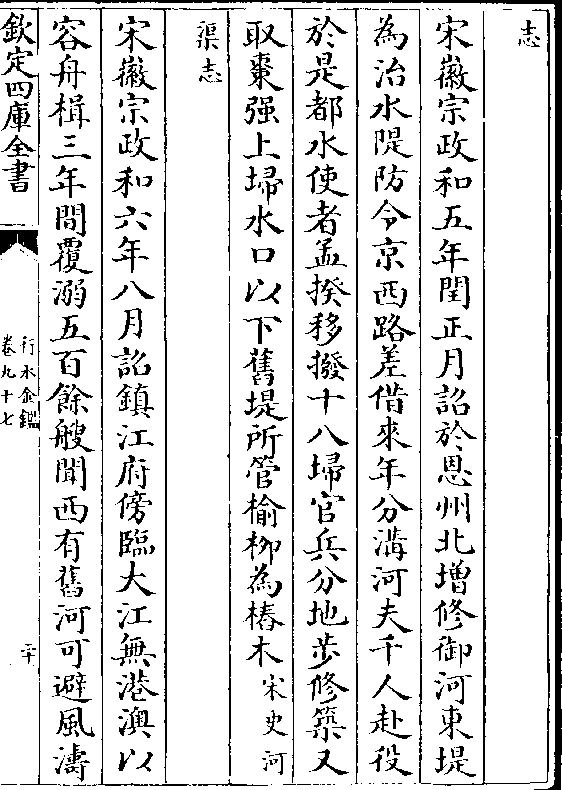 志
宋徽宗政和五年閏正月詔於恩州北増修御河東堤
為治水隄防令京西路差借來年分溝河夫千人赴役
於是都水使者孟揆移撥十八埽官兵分地步修築又
取棗强上埽水口以下舊堤所管榆柳為樁木宋史河
渠志
宋徽宗政和六年八月詔鎮江府傍臨大江無港澳以
容舟楫三年間覆溺五百餘艘聞西有舊河可避風濤
欽定四庫全書
行水金鑑
卷九十七
二十